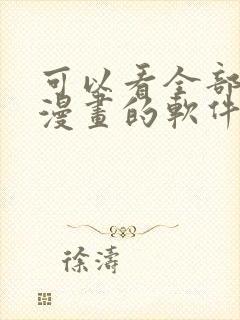 可以看全部
漫畫的軟件
徐濤